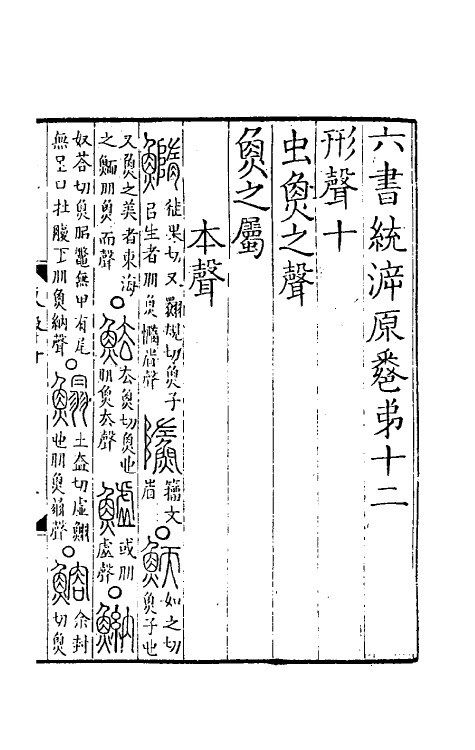 六書統泝原卷弟十二
形聲十
虫魚之聲
魚之屬
本聲
鰖徒果切又翾規切魚子已生者从魚憜省聲 籒文省○鮞如之切魚子也
又魚之美者東海之鮞从魚而聲○魼去魚切魚也从魚去聲 鱋或从魚虗聲○魶
奴荅切魚佀鼈無甲有尾無足口在腹下从魚納聲○鰨土盍切虛鰨也从魚𦐇聲○鰫余封切魚